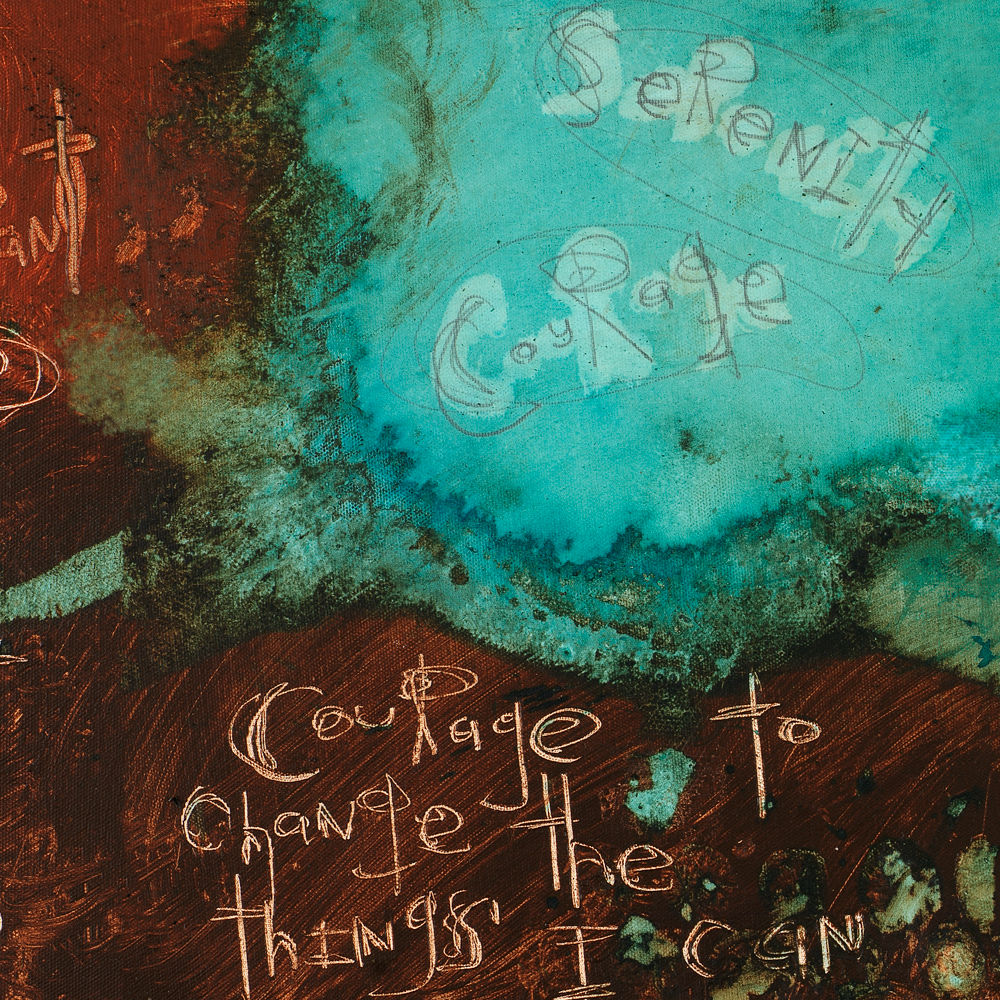 SeReNITy
CouRage
CouRage to
change the
thINgs I can